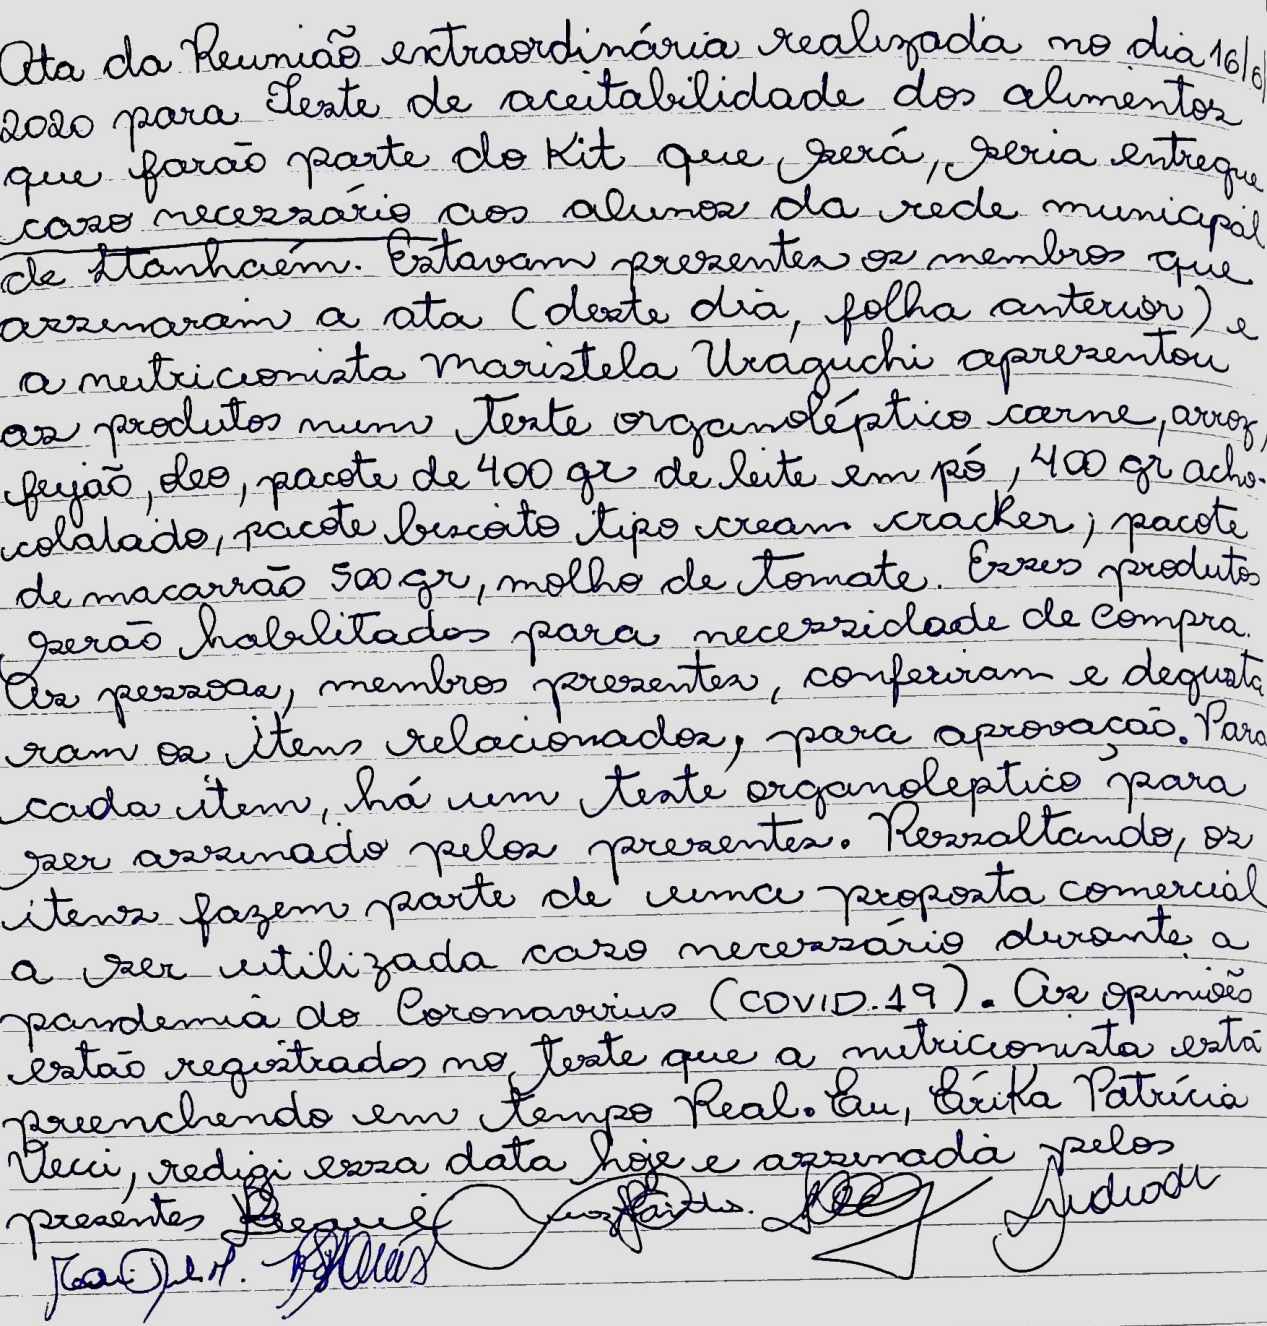 Ata da Reunião extraordinária realizada no dia 16/6/
2020 para Teste de aceitabilidade dos alimentos
que farão parte do Kit que será, seria entregue
caso necessário aos alunos da rede municipal
de Itanhaém. Estavam presentes os membros que
assinaram a ata (deste dia, folha anterior) e
a nutricionista Maristela Uraguchi apresentou
os produtos num teste organoléptico carne, arroz,
feijão, óleo, pacote de 400 gr de leite em pó, 400 gr acho-
colatado, pacote biscoito tipo cream cracker, pacote
de macarrão 500 gr, molho de tomate. Esses produtos
serão habilitados para necessidade de compra.
As pessoas, membros presentes, conferiram e degusta
ram os itens relacionados, para aprovação. Para
cada item, há um teste organoleptico para
ser assinado pelos presentes. Ressaltando, os
itens fazem parte de uma proposta comercial
a ser utilizada caso necessário durante a
pandemia do Coronavirus (COVID.19). As opiniões
estão registrados no teste que a nutricionista está
preenchendo em tempo Real. Eu, Érika Patrícia
Vecci, redigi essa data hoje e assinada pelos
presentes